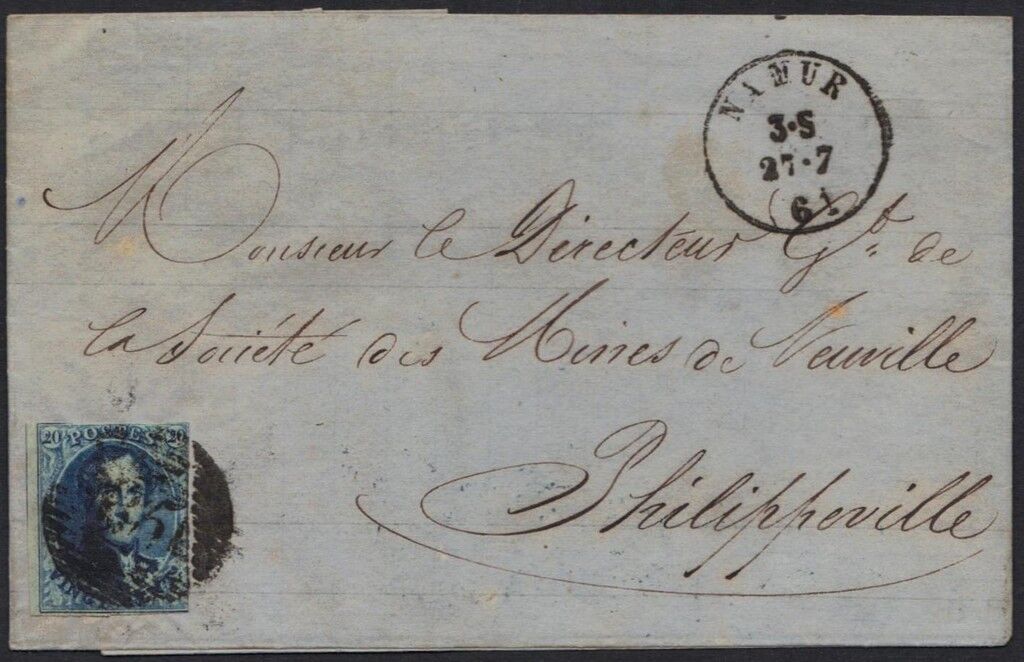 NAMUR
3·S
27·7
61
Monsieur le Directeur Gt. de
la Société des Mines de Neuville
Philippeville
20 POSTES 20